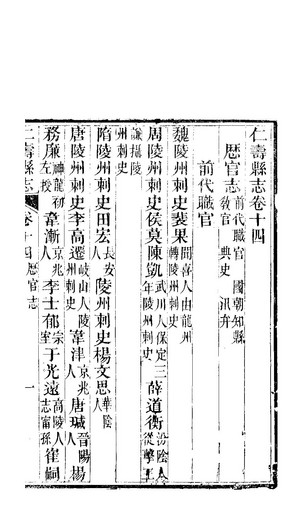 仁壽縣志卷十四
歴官志 前代職官 國朝知縣 教官 典史 汛弁
前代職官
魏陵州刺史裴果 聞喜人由龍州轉陵州刺史
周陵州刺史侯莫陳凱 武川人保定三年陵州刺史 薛道衡 汾陰人從學王
謙攝陵州刺史
隋陵州刺史田宏 長安人 陵州刺史楊文思 華陰人
唐陵州刺史李高遷 岐山人陵州刺史 韋津 京兆人 唐瑊 晉陽人 楊
務廉 神龍初左授 韋漸 京兆人 李士郁 宗室 于光遠 高陵人志甯孫 崔嗣
仁壽縣志 卷十四 歴官志 一